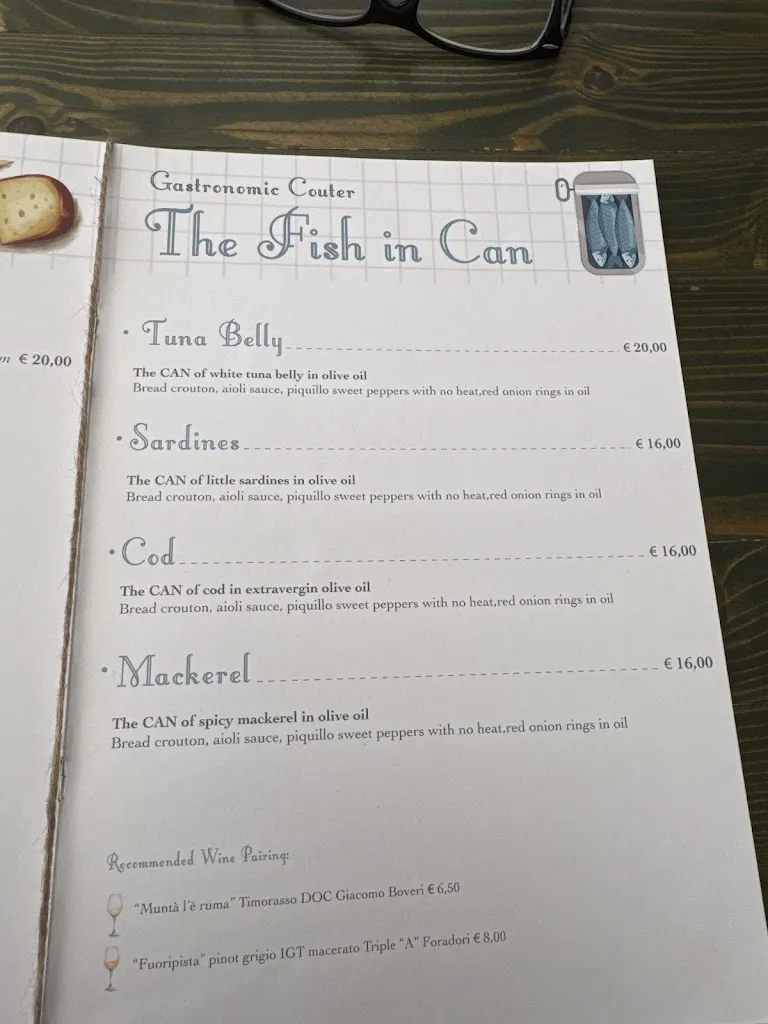 Gastronomic Couter
The Fish in Can
m € 20,00
• Tuna Belly € 20,00
The CAN of white tuna belly in olive oil
Bread crouton, aioli sauce, piquillo sweet peppers with no heat,red onion rings in oil
• Sardines € 16,00
The CAN of little sardines in olive oil
Bread crouton, aioli sauce, piquillo sweet peppers with no heat,red onion rings in oil
• Cod € 16,00
The CAN of cod in extravergin olive oil
Bread crouton, aioli sauce, piquillo sweet peppers with no heat,red onion rings in oil
• Mackerel € 16,00
The CAN of spicy mackerel in olive oil
Bread crouton, aioli sauce, piquillo sweet peppers with no heat,red onion rings in oil
Recommended Wine Pairing:
“Muntà l'è ruma” Timorasso DOC Giacomo Boveri € 6,50
“Fuoripista” pinot grigio IGT macerato Triple “A” Foradori € 8,00